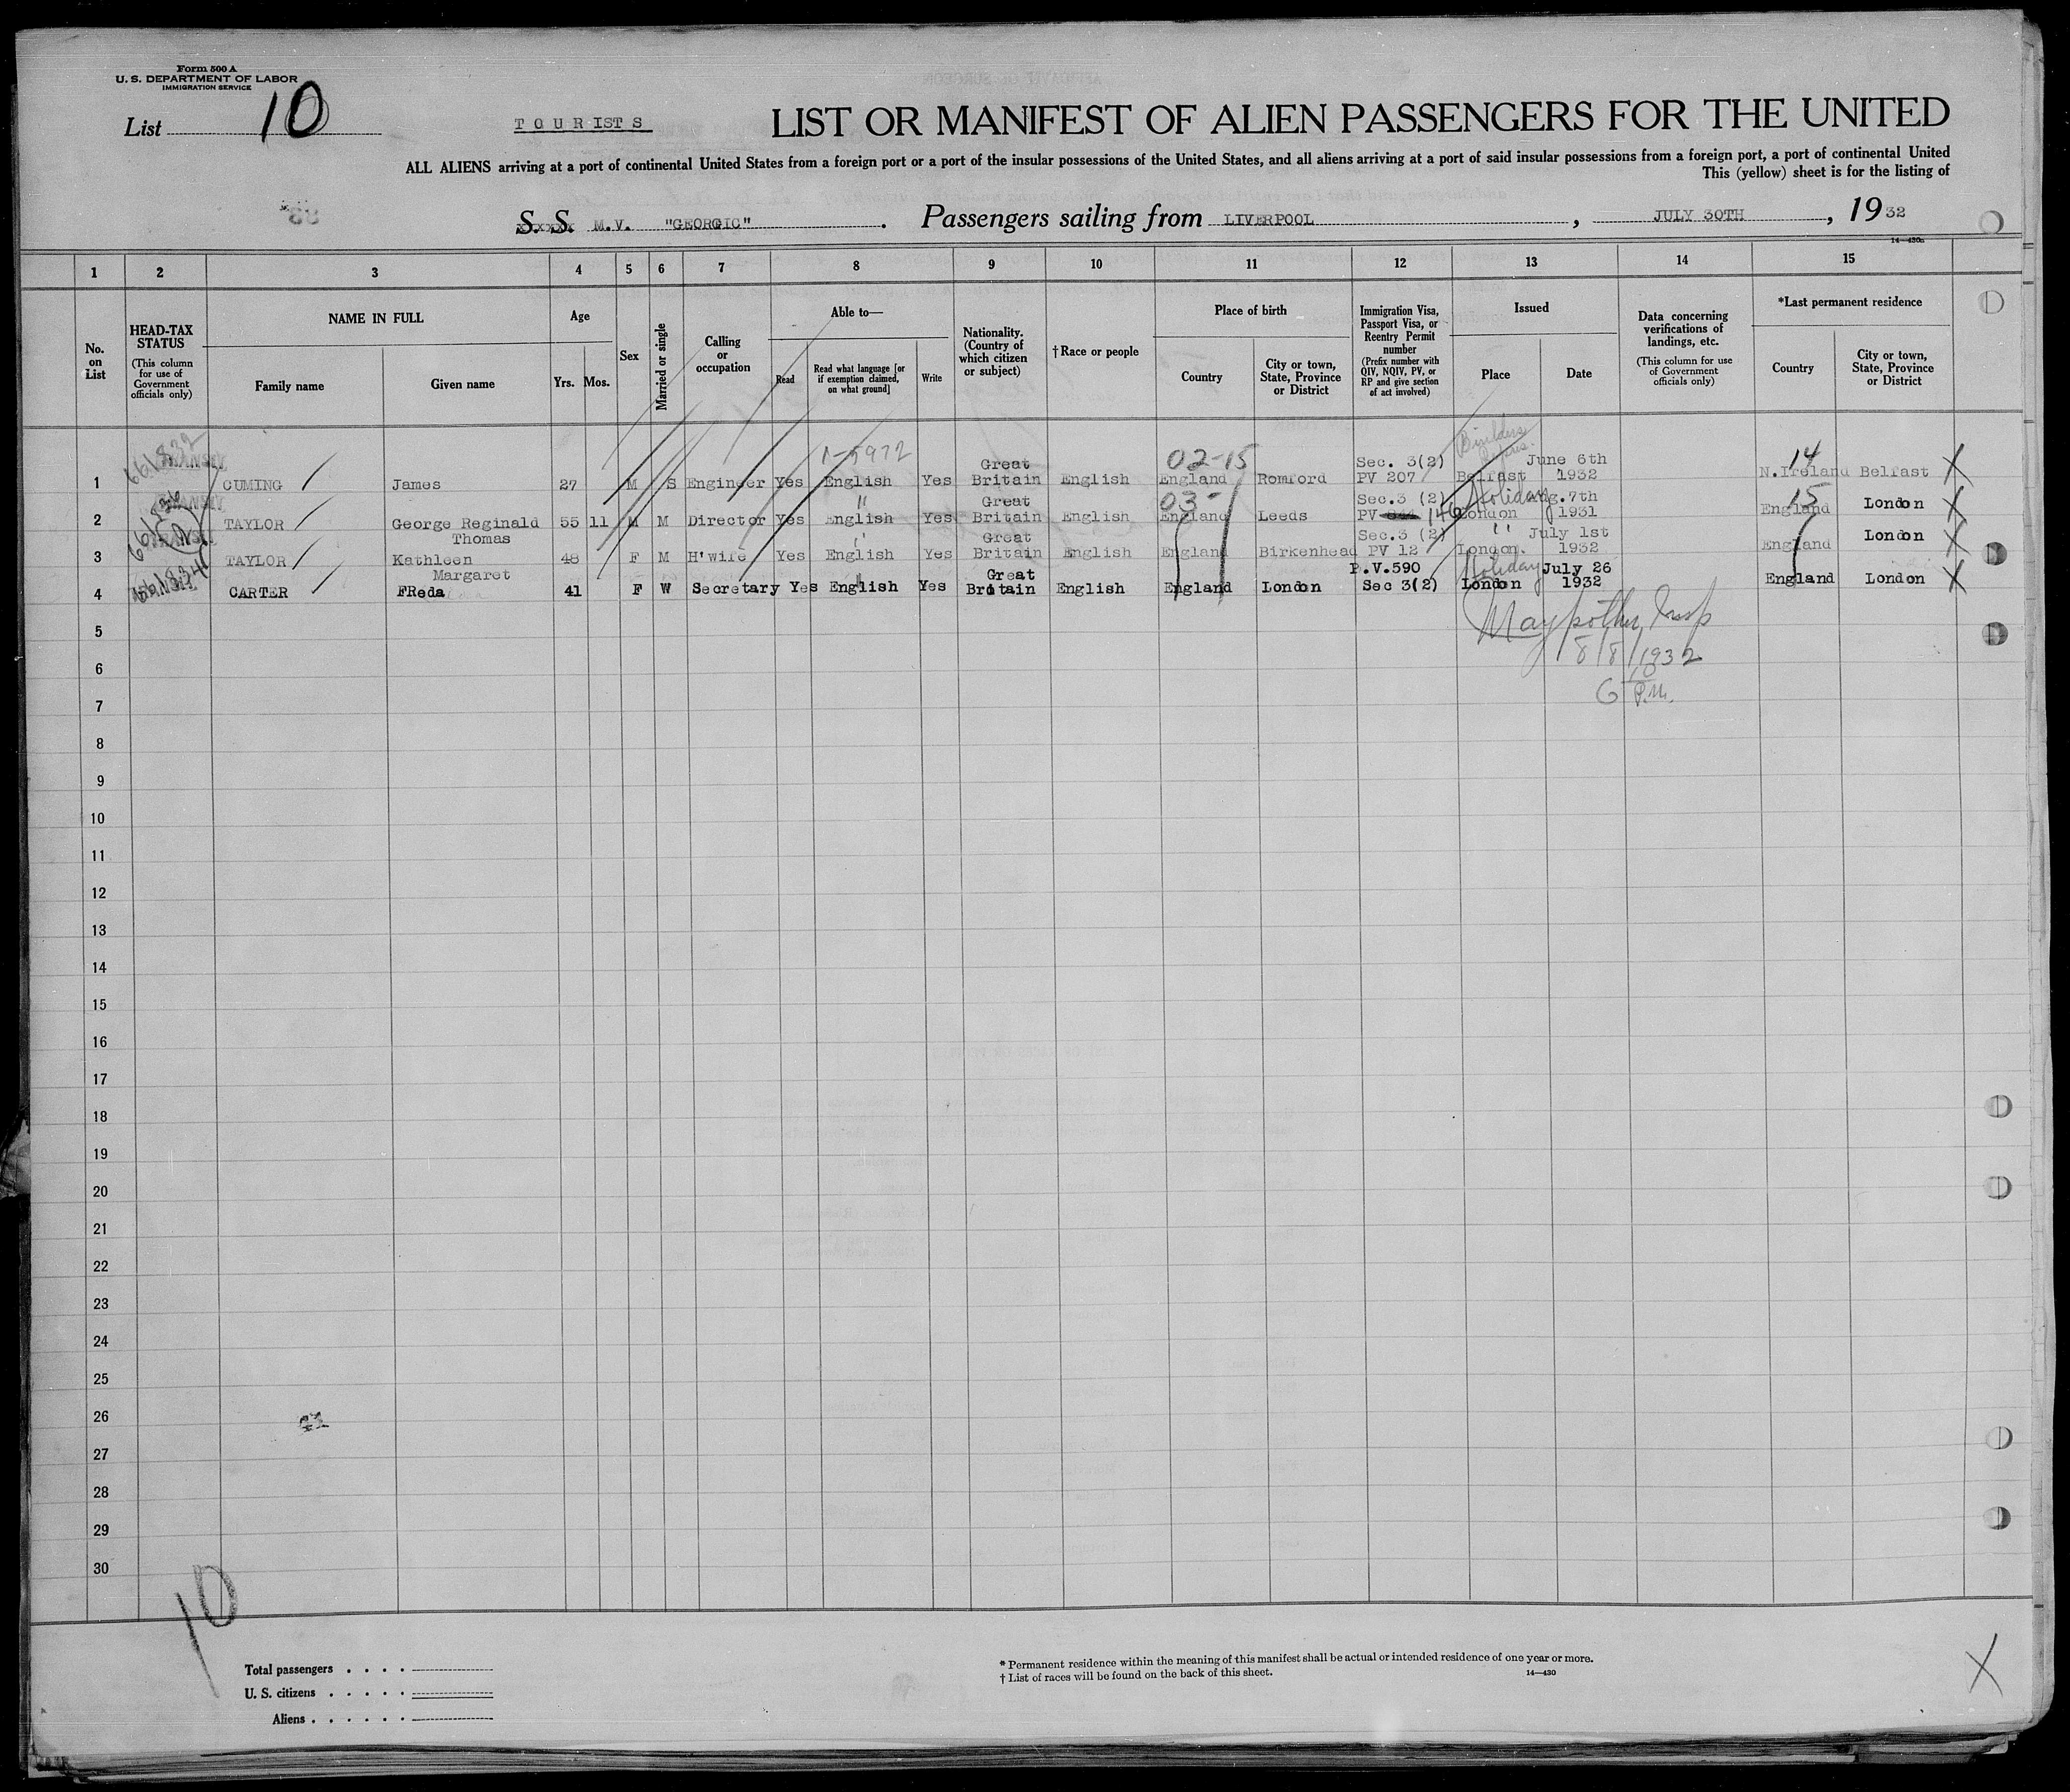 Form 500 A
U. S. DEPARTMENT OF LABOR
IMMIGRATION SERVICE
List 10
TOURISTS
LIST OR MANIFEST OF ALIEN PASSENGERS FOR THE UNITED
ALL ALIENS arriving at a port of continental United States from a foreign port or a port of the insular possessions of the United States, and all aliens arriving at a port of said insular possessions from a foreign port, a port of continental United
This (yellow) sheet is for the listing of
S. S. M.V. "GEORGIC" . Passengers sailing from LIVERPOOL , JULY 30TH , 1932
14—430a
1 2 3 4 5 6 7 8 9 10 11 12 13 14 15
No. on List
HEAD-TAX STATUS
(This column for use of Government officials only)
NAME IN FULL
Family name
Given name
Age
Yrs. Mos.
Sex
Married or single
Calling or occupation
Able to—
Read
Read what language [or if exemption claimed, on what ground]
Write
Nationality. (Country of which citizen or subject)
† Race or people
Place of birth
Country
City or town, State, Province or District
Immigration Visa, Passport Visa, or Reentry Permit number
(Prefix number with QIV, NQIV, PV, or RP and give section of act involved)
Issued
Place
Date
Data concerning verifications of landings, etc.
(This column for use of Government officials only)
*Last permanent residence
Country
City or town, State, Province or District
1-5972
02-15
14
Great Sec. 3(2) June 6th
1 CUMING James 27 M S Engineer Yes English Yes Britain English England Romford PV 207 Belfast 1932 N.Ireland Belfast X
" Great 03- Sec.3 (2) Holiday g.7th 15
2 TAYLOR George Reginald 55 11 M M Director Yes English Yes Britain English England Leeds PV 146 London 1931 England London X
Thomas Great Sec.3 (2) " July 1st
3 TAYLOR Kathleen 48 F M H'wife Yes English Yes Britain English England Birkenhead PV 12 London. 1932 England London X
Margaret Great P.V.590 Holiday July 26
4 CARTER FReda 41 F W Secretary Yes English Yes Britain English England London Sec 3(2) London 1932 England London X
5
Insp
6
8/8/1932
7
6 P.M.
8
9
10
11
12
13
14
15
16
17
18
19
20
21
22
23
24
25
26
27
28
29
30
10
Total passengers . . . .
U. S. citizens . . . . .
Aliens . . . . . .
* Permanent residence within the meaning of this manifest shall be actual or intended residence of one year or more.
† List of races will be found on the back of this sheet.
14—430
X